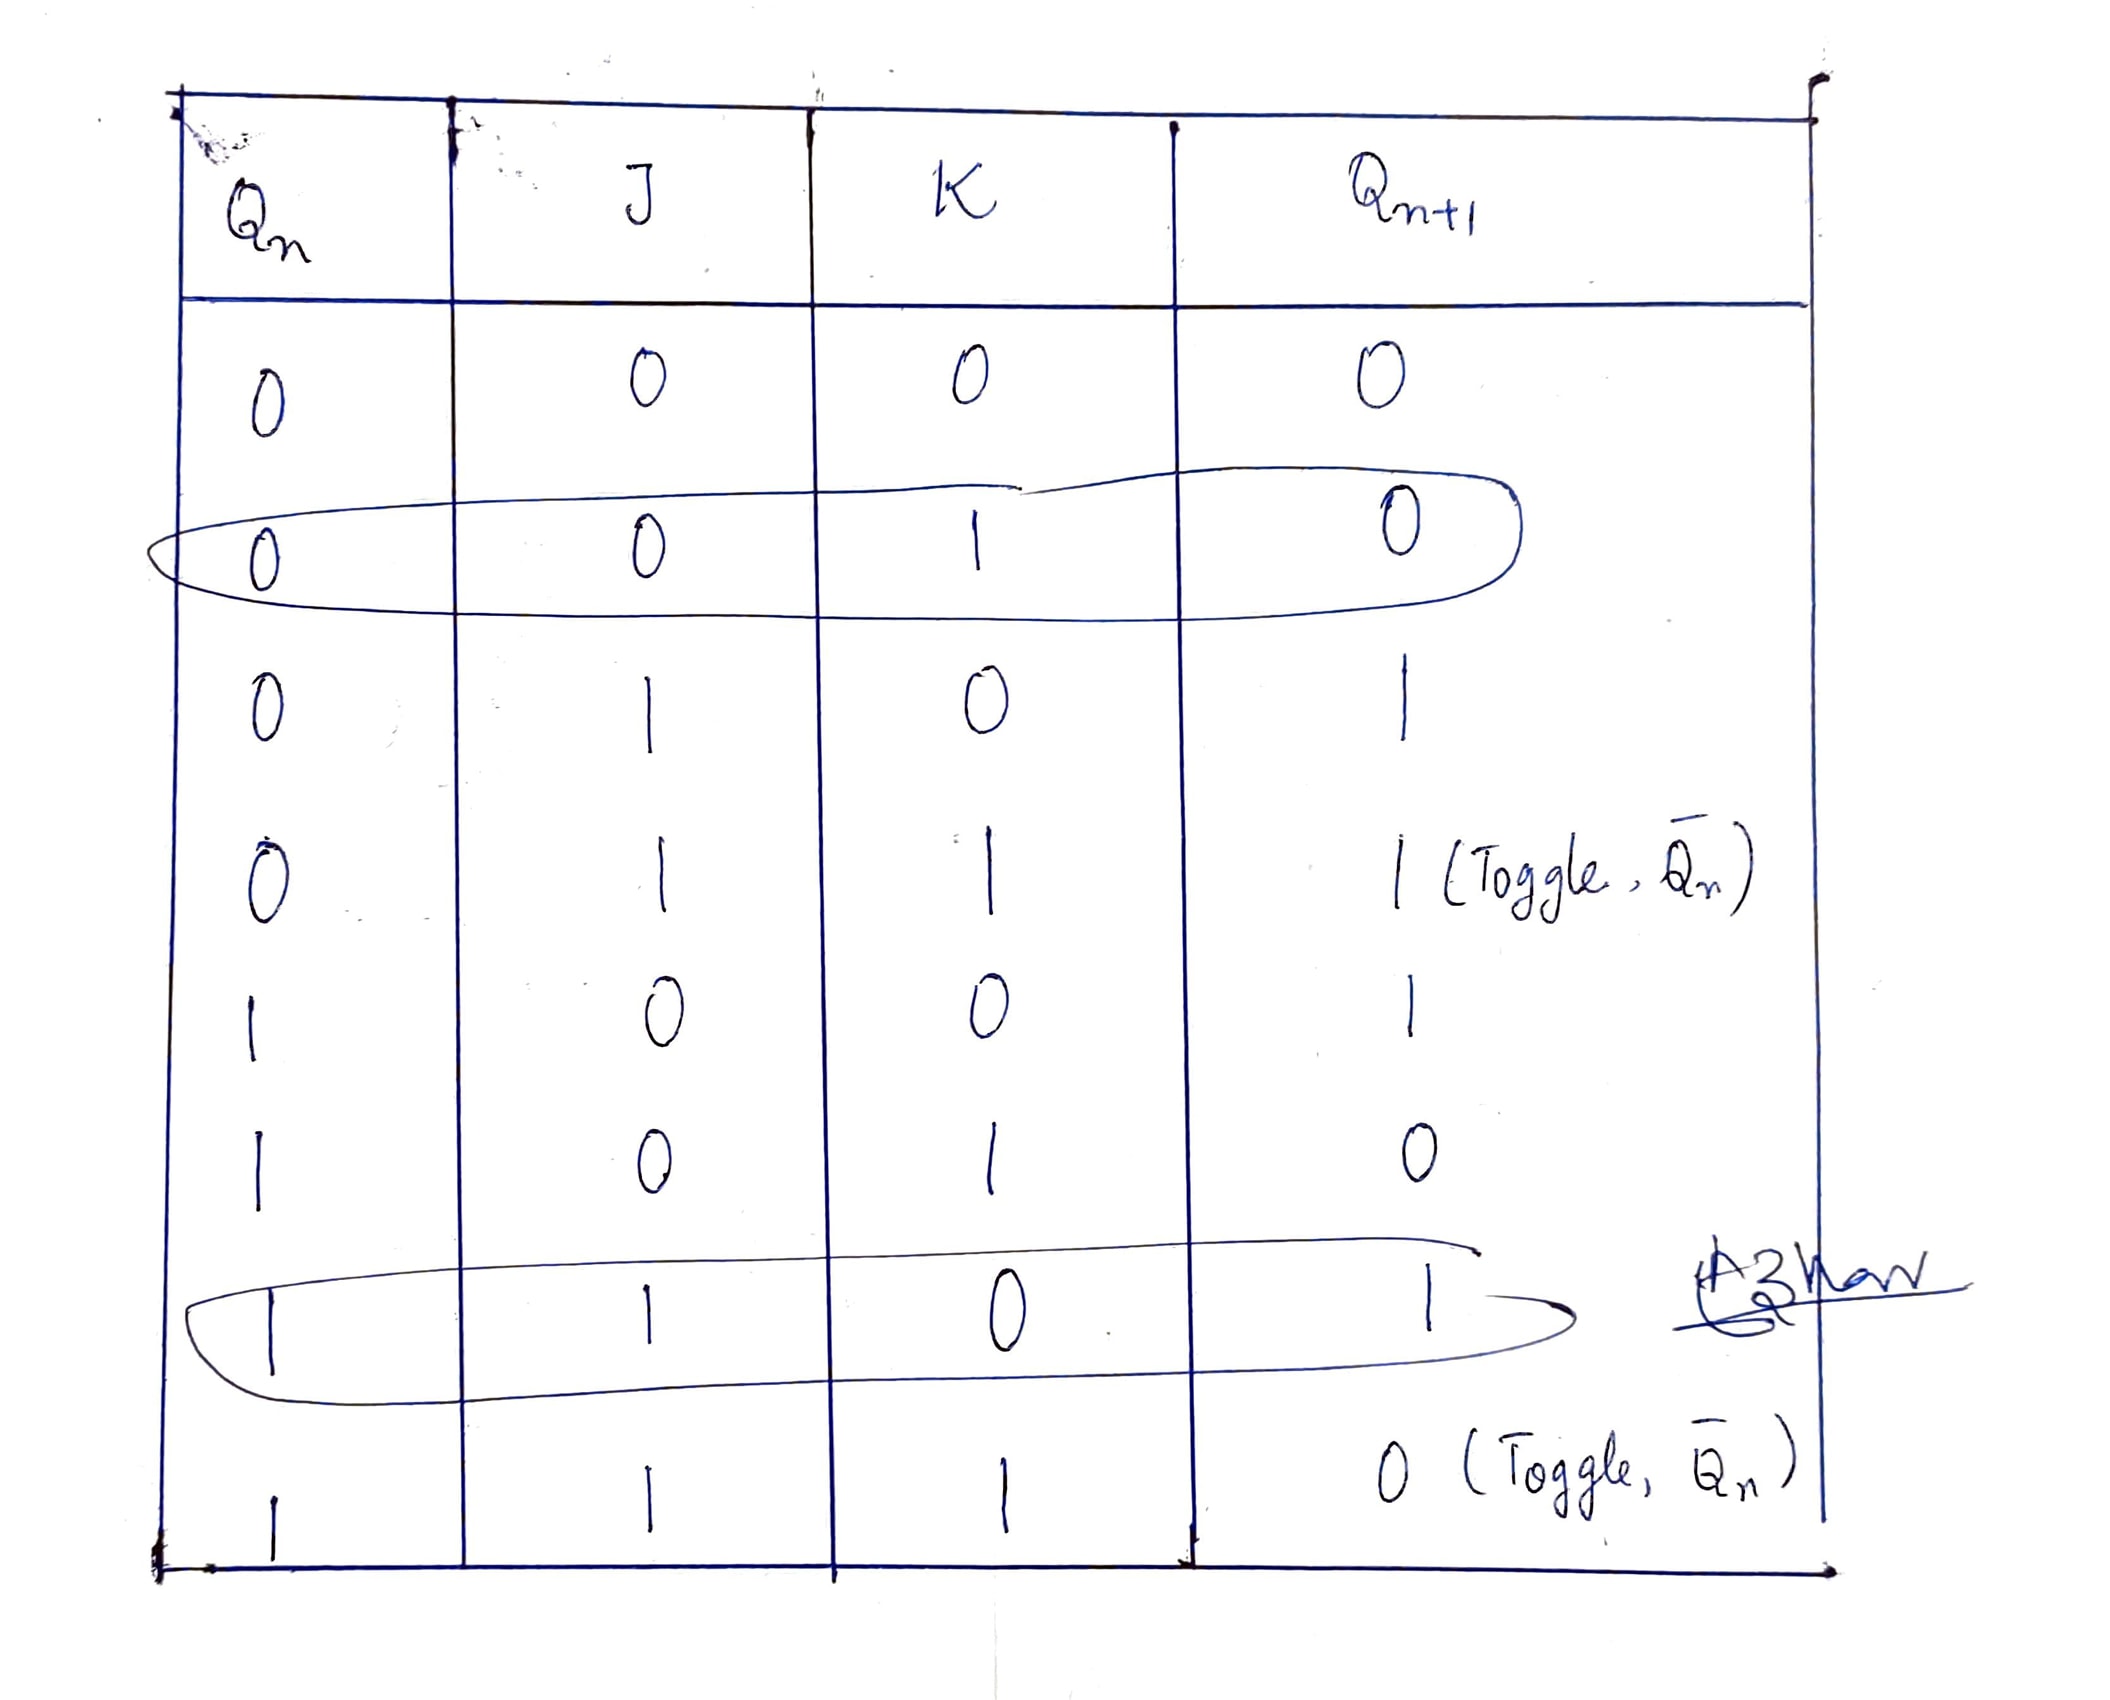 Qn J K Qn+1
0 0 0 0
0 0 1 0
0 1 0 1
0 1 1 1 (Toggle, Q̄n)
1 0 0 1
1 0 1 0
1 1 0 1
1 1 1 0 (Toggle, Q̄n)